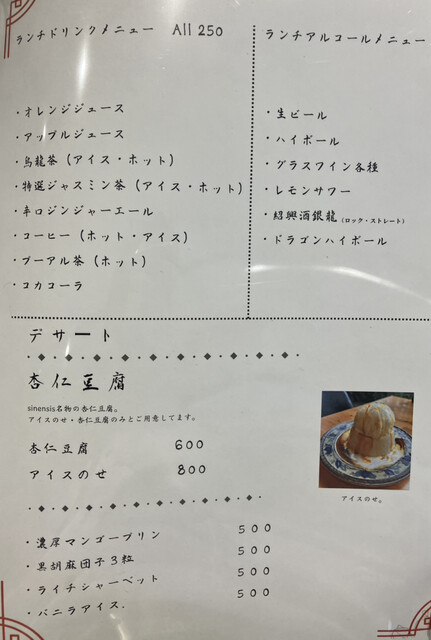 ランチドリンクメニュー All 250
・オレンジジュース
・アップルジュース
・烏龍茶（アイス・ホット）
・特選ジャスミン茶（アイス・ホット）
・辛口ジンジャーエール
・コーヒー（ホット・アイス）
・プーアル茶（ホット）
・コカコーラ
ランチアルコールメニュー
・生ビール
・ハイボール
・グラスワイン各種
・レモンサワー
・紹興酒銀龍（ロック・ストレート）
・ドラゴンハイボール
デザート
杏仁豆腐
sinensis名物の杏仁豆腐。
アイスのせ・杏仁豆腐のみとご用意してます。
杏仁豆腐 600
アイスのせ 800
アイスのせ。
・濃厚マンゴープリン 500
・黒胡麻団子3粒 500
・ライチシャーベット 500
・バニラアイス. 500